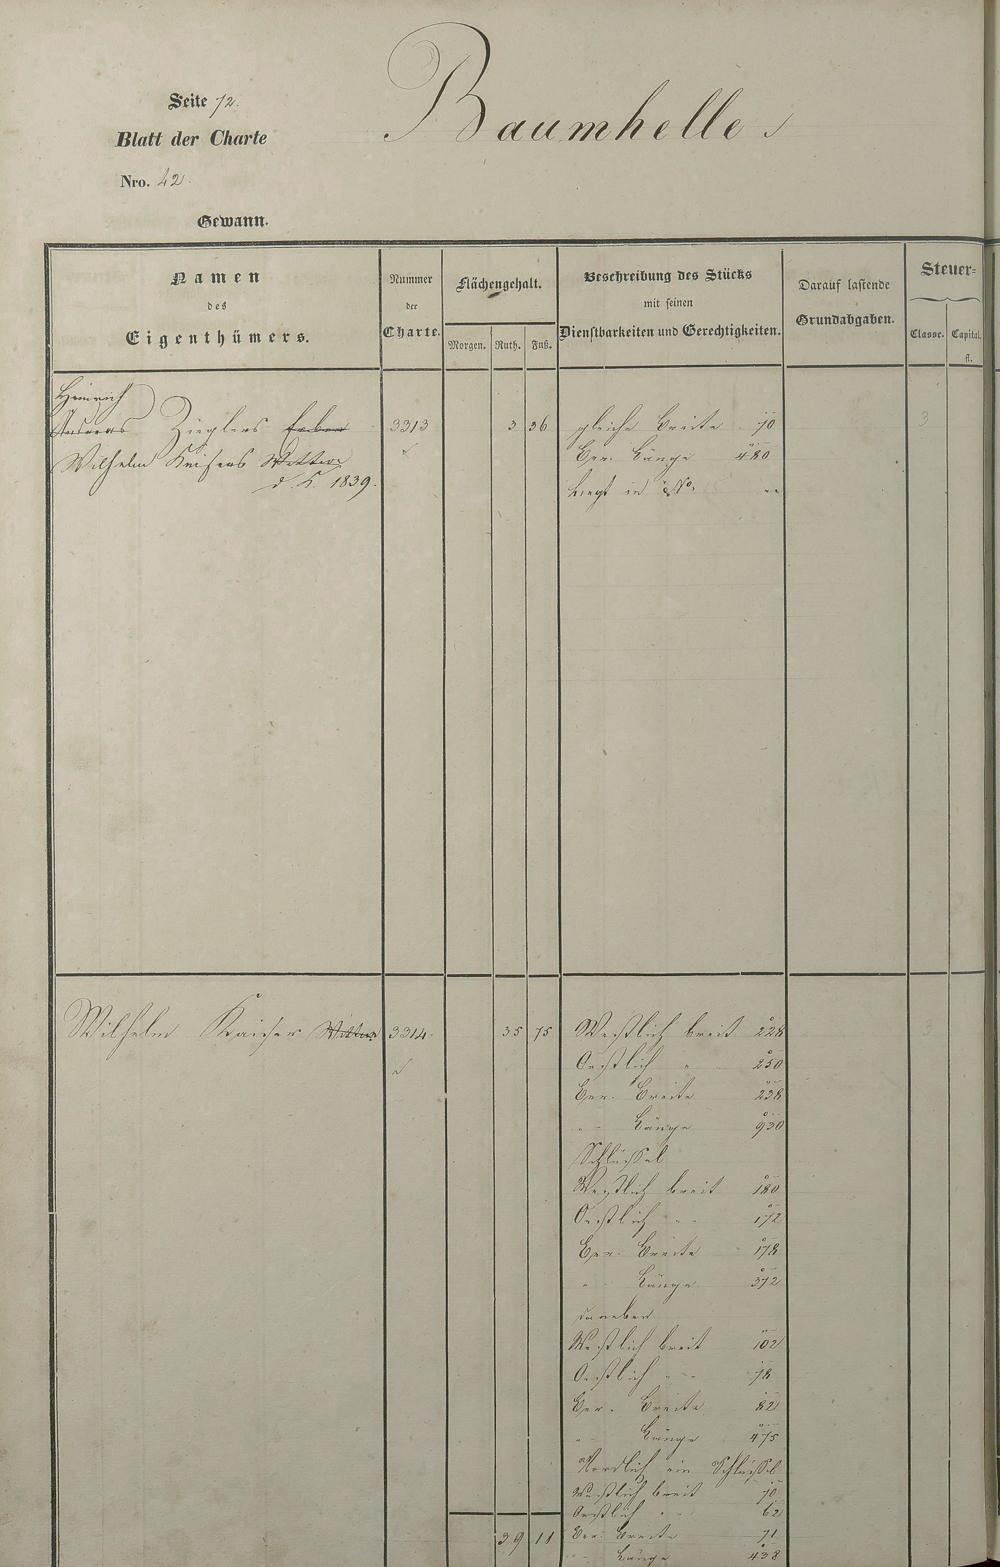 Baumhelle
Seite 72.
Blatt der Charte
Nro. 42.
Gewann.
Namen
des
Eigenthümers.
Nummer
der
Charte.
Flächengehalt.
Morgen. Ruth. Fuß.
Beschreibung des Stücks
mit seinen
Dienstbarkeiten und Gerechtigkeiten.
Darauf lastende
Grundabgaben.
Steuer-
Classe. Capital.
fl.
Heinrich
Andreas Zieglers Erben 3313 3 36 gleiche Breite 70 3
Wilhelm Kaisers Ber. Länge 480
d. K. 1839. Liegt in No.
Wilhelm Kaiser 3314. 35 75 Westlich breit 228 3
Oestlich " 250
Ber. Breite 238
" Länge 930
Schlüssel
Westlich breit 180
Oestlich " 172
Ber. Breite 178
" Länge 372
daneben
Westlich breit 102
Oestlich " 78
Ber. Breite 82
" Länge 475
Nordlich ein Schlüssel
Westlich breit 70
Oestlich " 62
39 11 Ber. Breite 71
" Länge 438